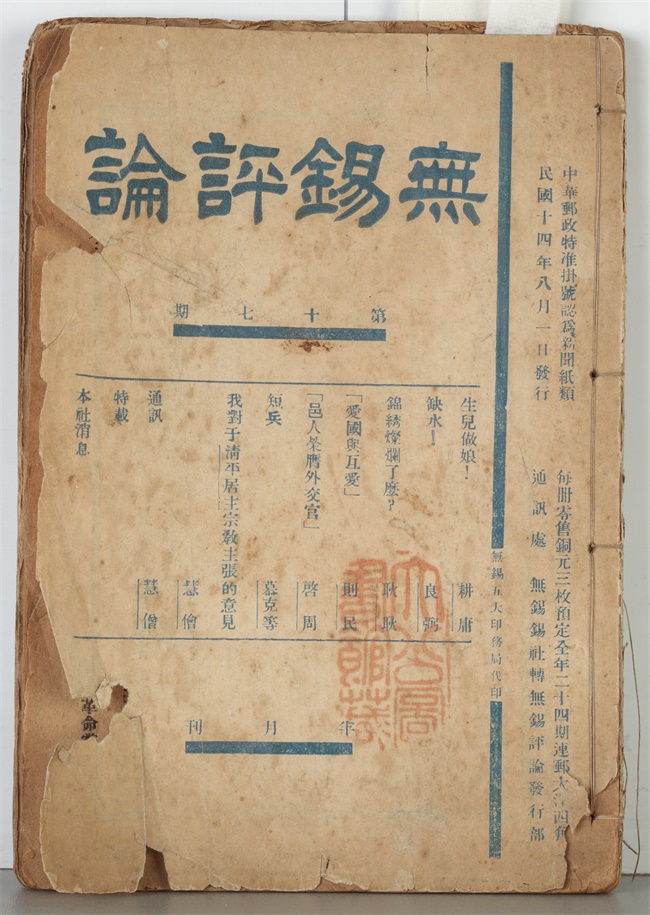 中華郵政特准掛號認爲新聞紙類
民國十四年八月一日發行
每冊零售銅元三枚預定全年二十四期連郵大洋四角
通訊處 無錫錫社轉無錫評論發行部
無錫五大印務局代印
無錫評論
第十七期
生兒做娘！ 耕庸
缺水！ 良弼
錦綉燦爛了麽？ 耿耿
「愛國與互愛」 則民
「邑人榮膺外交官」 啓周
短兵 慕克等
我對于清平居士宗敎主張的意見
慧僧
通訊 慧僧
特載
本社消息
半月刊
革命